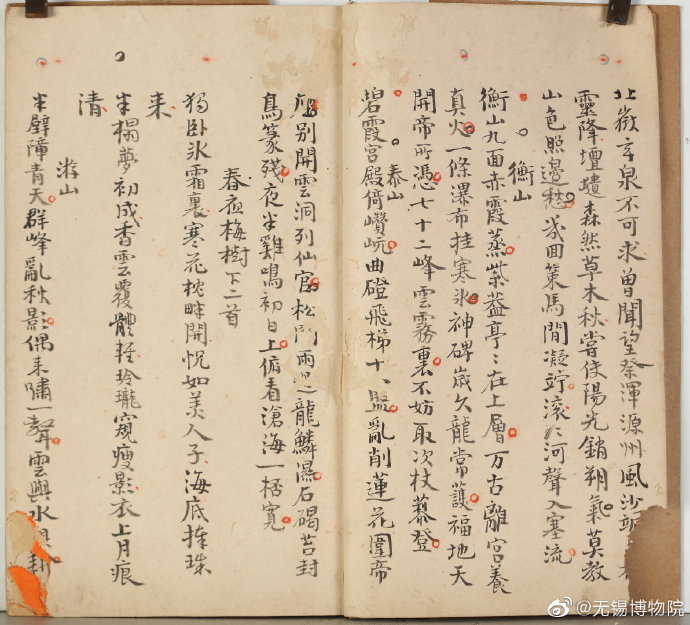 北嶽玄泉不可求曾聞望祭渾源州風沙
靈降壇壝森然草木秋嘗使陽光銷朔氣莫教
山色照邊愁幾回策馬閒凝竚滾〻河聲入塞流
衡山
衡山九面赤霞蒸紫葢亭〻在上層万古離宮養
真火一條瀑布挂寒冰神碑歲久龍常護福地天
開帝所憑七十二峰雲霧裏不妨取次杖藜登
泰山
碧霞宮殿倚巑岏曲磴飛梯十八盤亂削蓮花圍帝
座别開雲洞列仙官松門雨過龍鱗濕石碣苔封
鳥篆殘夜半雞鳴初日上俯看滄海一桮寬
春夜梅樹下二首
獨卧冰霜裏寒花枕畔開怳如美人子海底捧珠
来
半榻夢初成香雲覆體輕玲瓏窺瘦影衣上月痕
清
游山
半壁障青天群峰亂秋影偶来嘯一聲雲與水
@无锡博物院